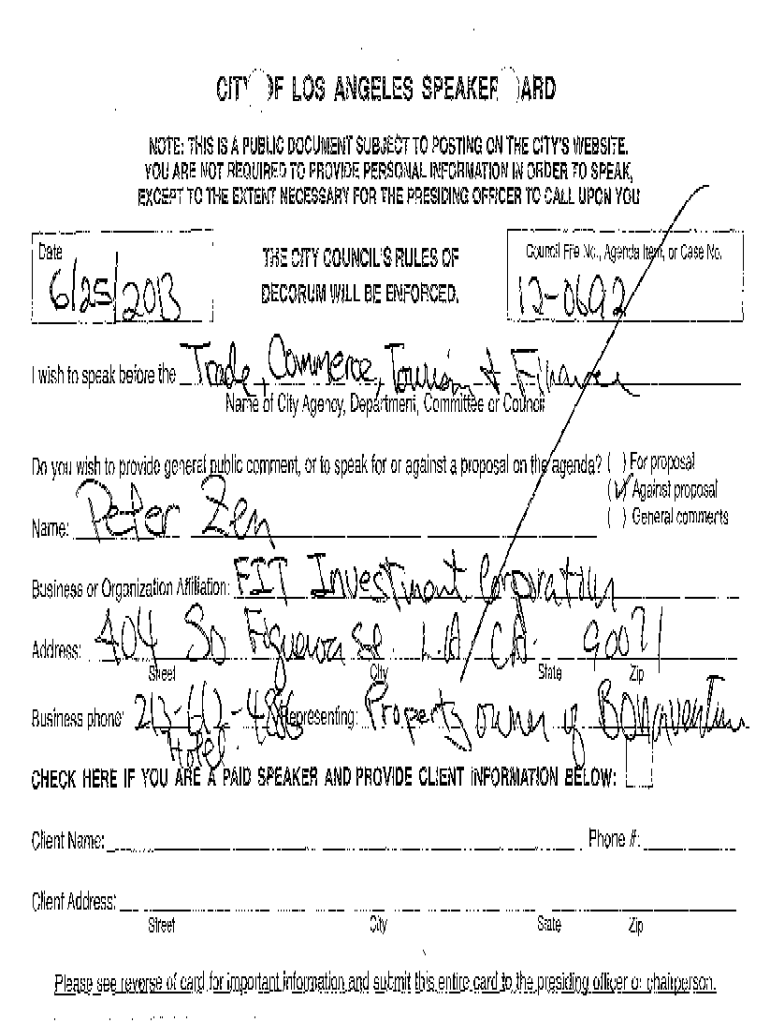 CITY OF LOS ANGELES SPEAKER CARD
NOTE: THIS IS A PUBLIC DOCUMENT SUBJECT TO POSTING ON THE CITY'S WEBSITE.
YOU ARE NOT REQUIRED TO PROVIDE PERSONAL INFORMATION IN ORDER TO SPEAK,
EXCEPT TO THE EXTENT NECESSARY FOR THE PRESIDING OFFICER TO CALL UPON YOU
Date
6/25/2013
THE CITY COUNCIL'S RULES OF
DECORUM WILL BE ENFORCED.
Council File No., Agenda Item, or Case No.
12-0692
I wish to speak before the Trade, Commerce, Tourism & Finance
Name of City Agency, Department, Committee or Council
Do you wish to provide general public comment, or to speak for or against a proposal on the agenda? ( ) For proposal
(✓) Against proposal
Name: Peter Zen ( ) General comments
Business or Organization Affiliation: FIT Investment Corporation
Address: 404 So Figueroa St. L.A CA. 90071
Street City State Zip
Business phone: 213-612-4886 Representing: Property owner of Bonaventure
Hotel.
CHECK HERE IF YOU ARE A PAID SPEAKER AND PROVIDE CLIENT INFORMATION BELOW:
Client Name: Phone #:
Client Address:
Street City State Zip
Please see reverse of card for important information and submit this entire card to the presiding officer or chairperson.